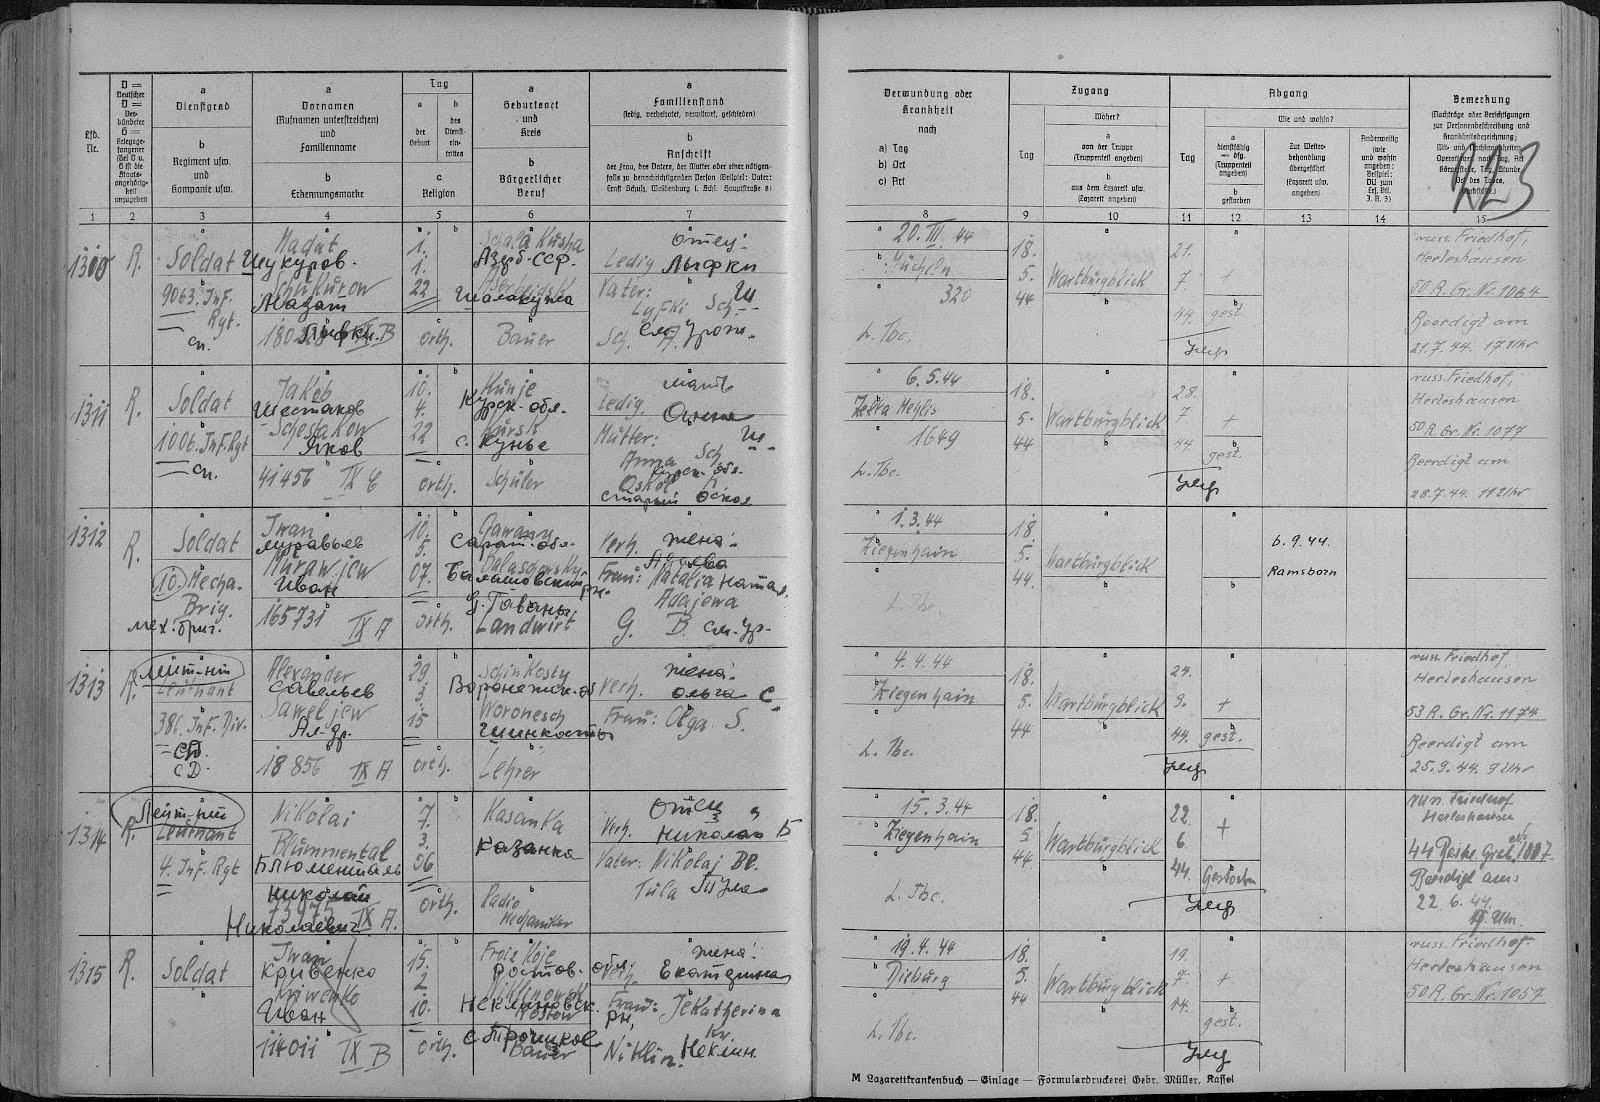 Lfd. Nr.
D = Deutscher
D = Verbündeter
G = Kriegsgefangener
(Bei V u. G ist die Staatsangehörigkeit anzugeben)
a
Dienstgrad
b
Regiment usw.
und
Kompanie usw.
a
Vornamen
(Rufnamen unterstreichen)
und
Familienname
b
Erkennungsmarke
Tag
a
der Geburt
b
des Diensteintrittes
c
Religion
a
Geburtsort
und
Kreis
b
Bürgerlicher
Beruf
a
Familienstand
(ledig, verheiratet, verwitwet, geschieden)
b
Anschrift
der Frau, des Vaters, der Mutter oder einer nächsten-
falls zu benachrichtigenden Person (Beispiel: Vater:
Ernst Schulz, Waldenburg i. Schl. Hauptstraße 8)
1 2 3 4 5 6 7
1310 R. Soldat
9063. Inf.
Rgt.
сп.
Madat
Шукуров
Schukurow
Мадат
IX B
1.
1.
22
orth.
Schala Kuscha
Азрб-ССР.
Шалакуша
Bauer
отец:
Ledig Лыфки
Vater:
Lyfki Sch.
1311 R. Soldat
1006. Inf. Rgt
сп.
Jakob
Шестаков
Schestakow
Яков
41456 IX C
10.
4.
22
orth.
Kunje
Курск. обл.
Kursk
с. Кунье
Schüler
мать
Ledig. Анна
Mutter: Ш
Anna Sch
Oskol
старый Оскол
1312 R. Soldat
10. Mecha-
Brig.
мех. бриг.
Iwan
Муравьев
Murawjew
Иван
165731 IX A
10.
5.
07.
orth.
Gawany
Сарат. обл.
Balaschowsky
Балашовский рн.
д. Гаваны
Landwirt
Verh. жена:
Frau: Natalia Натал.
Adajewa
G. B. см. ур.
1313 R. Лейт-нт
Leutnant
38C. Inf. Div.
СД
СД
Alexander
Савельев
Saweljew
Ал-др.
18856 IX A
29
3
15
orth.
Schinkosty
Воронежск. об
Woronesch
Шинкосты
Lehrer
жена:
Verh. Ольга С.
Frau: Olga S.
1314 R. Лейт-нт
Leutnant
4. Inf. Rgt
Nikolai
Blummental
Блюменталь
Николай
73975 IX A.
Николаевич
7.
3.
06
orth.
Kasanka
Казанка
Radio
Mechaniker
отец
Verh. Николай Б
Vater: Nikolai Bl.
Tula Тула
1315 R. Soldat
Iwan
Кривенко
Kriwenko
Иван
114011 IX B
15.
2
10.
orth.
Ростов. обл.
Неклиновск. рн,
Rostow
с. Троицкое
Bauer
жена:
Verh. Екатерина
Frau: Jekatherina
Kr.
Неклин.
Verwundung oder
Krankheit
nach
a) Tag
b) Ort
c) Art
Zugang
Tag
Woher?
a
von der Truppe
(Truppenteil angeben)
b
aus dem Lazarett usw.
(Lazarett angeben)
Abgang
Tag
Wie und wohin?
a
dienstfähig
= dfg.
(Truppenteil angeben)
b
gestorben
Zur Weiter-
behandlung
übergeführt
(Lazarett usw. angeben)
Anderweitig
(wie und wohin angeben:
Beispiel:
DU zum Ers. Btl. J. R. 3)
Bemerkung
(Nachträge oder Berichtigungen
zur Personenbeschreibung und
Krankheitsbezeichnung;
223
8 9 10 11 12 13 14 15
20. III. 44
Mücheln
320
L. Tbc.
18.
5.
44
Wartburgblick
21.
7
44.
+
gest.
russ. Friedhof,
Herleshausen
50 R. Gr. Nr. 1064
Beerdigt am
21.7.44. 17 Uhr
6.5.44
Zella Mehlis
1649
L. Tbc.
18.
5.
44
Wartburgblick
28.
7
44.
+
gest.
russ. Friedhof,
Herleshausen
50 R. Gr. Nr. 1077
Beerdigt am
28.7.44. 11 Uhr
1.3.44
Ziegenhain
L. Tbc.
18.
5.
44.
Wartburgblick
6.9.44.
Ramsborn
4.4.44
Ziegenhain
L. Tbc.
18.
5.
44
Wartburgblick
24.
9.
44.
+
gest.
russ. Friedhof,
Herleshausen
53 R. Gr. Nr. 1174
Beerdigt am
25.9.44. 9 Uhr
15.3.44
Ziegenhain
L. Tbc.
18.
5
44
Wartburgblick
22.
6.
44.
+
Gestorben
russ. Friedhof
Herleshausen
44 Reihe Grab 1007.
Beerdigt am:
22.6.44.
19. Uhr.
19.4.44
Dieburg
L. Tbc.
18.
5.
44
Wartburgblick
19.
7.
44.
+
gest.
russ. Friedhof.
Herleshausen
50 R. Gr. Nr. 1057
M Lazarettkrankenbuch — Einlage — Formulardruckerei Gebr. Müller, Kassel